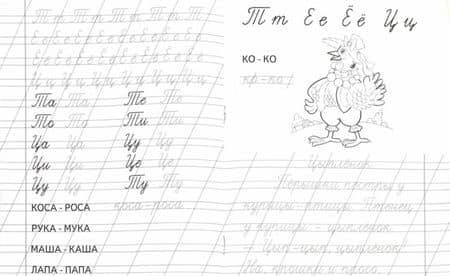 Т т Т т Т т Т т Т т Т
Ее Ее Ее Ее Ее Ее Ее Ее
Ёё Ёё Ёё Ёё Ёё Ёё Ёё
Ц ц Ц ц Ц ц Ц ц Ц ц Ц ц
Та Та Те Те
То То Ти Ти
Ца Ца Цу Цу
Ци Ци Це Це
Цу Цу Ту Ту
КОСА - РОСА коса-роса
РУКА - МУКА
МАША - КАША
ЛАПА - ПАПА
Т т Е е Ё ё Ц ц
КО - КО
ко-ко!
Цыплёнок
Пёрышки пестры у
курицы-птицы. Птенец
у курицы - цыплёнок.
- Цып-цып, цыплёнок!
На, крошки и просо.